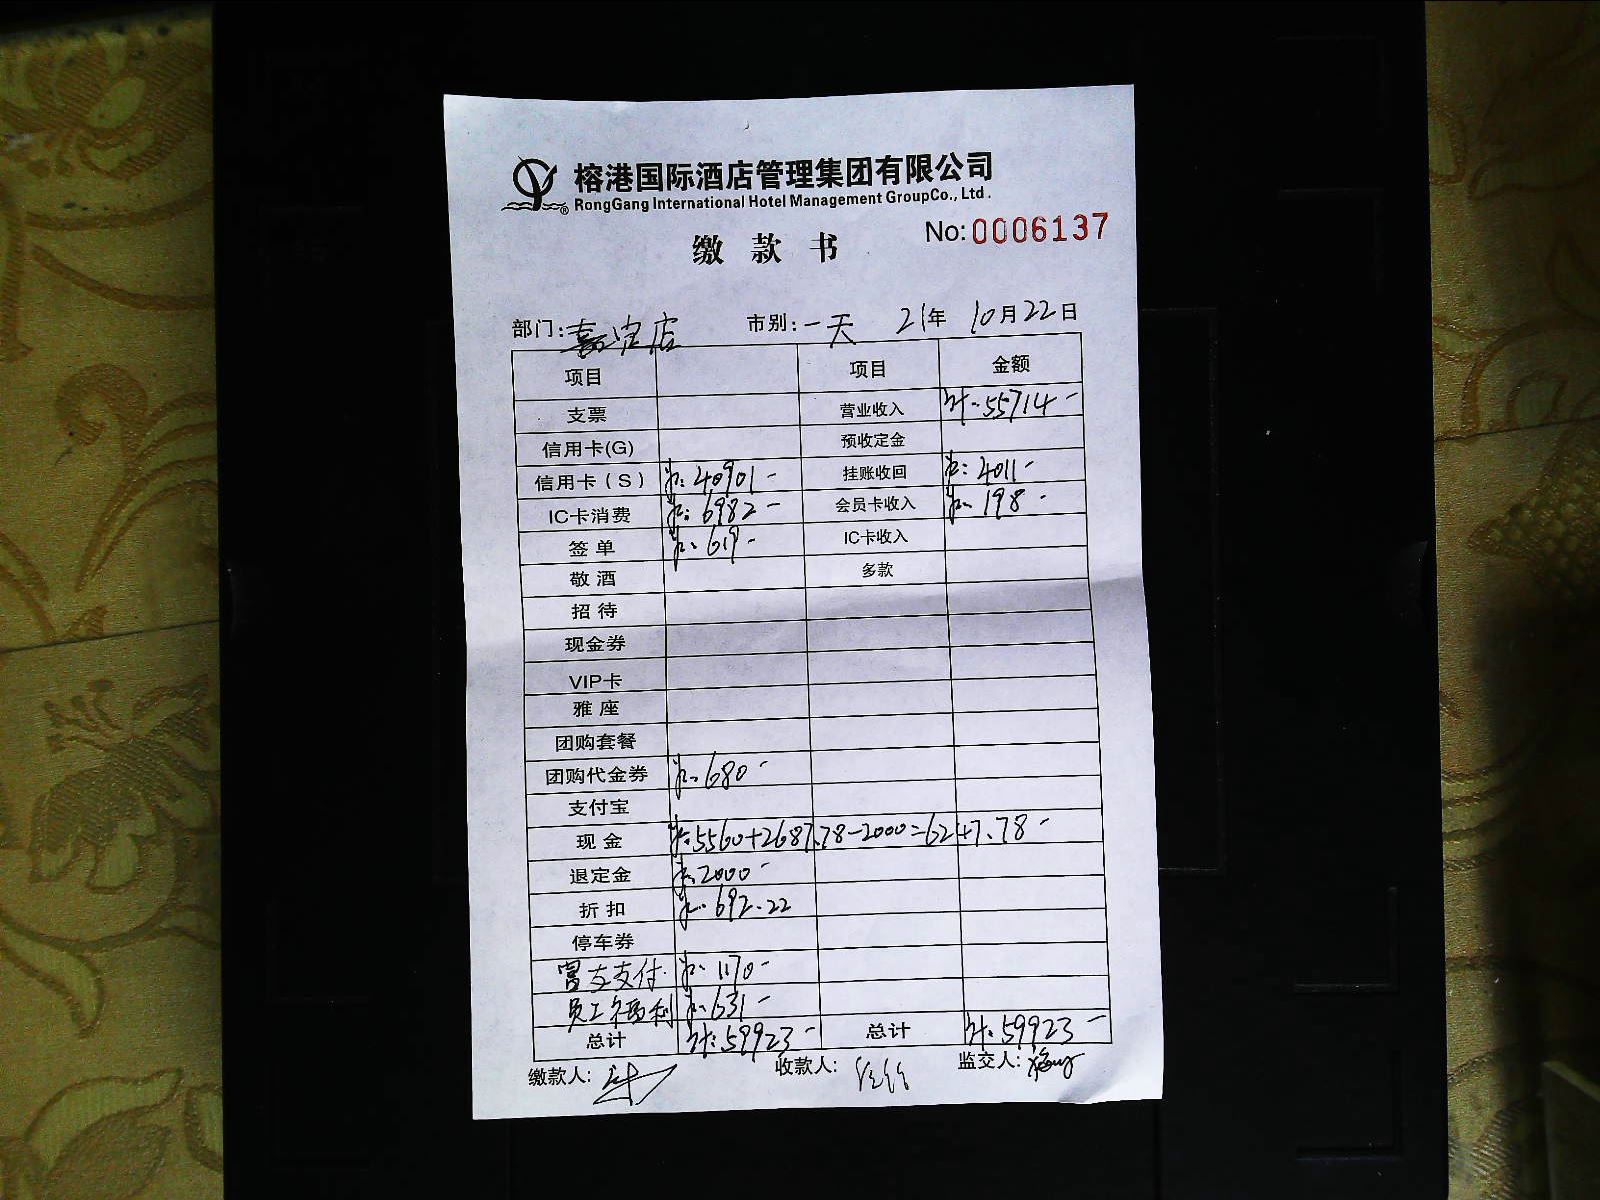 榕港国际酒店管理集团有限公司
RongGang International Hotel Management GroupCo., Ltd.
No:0006137
缴款书
部门:嘉定店 市别:一天 21年 10月22日
项目 项目 金额
支票 营业收入 计:55714-
信用卡(G) 预收定金
信用卡(S) 计:40901- 挂账收回 计:4011-
IC卡消费 计:6982- 会员卡收入 计:198-
签单 计:619- IC卡收入
敬酒 多款
招待
现金券
VIP卡
雅座
团购套餐
团购代金券 计:680-
支付宝
现金 计:5560+2687.78-2000=6247.78-
退定金 计:2000-
折扣 计:692.22
停车券
富友支付 计:1170-
员工福利 计:631-
总计 计:59923- 总计 计:59923-
缴款人: 收款人: 监交人: